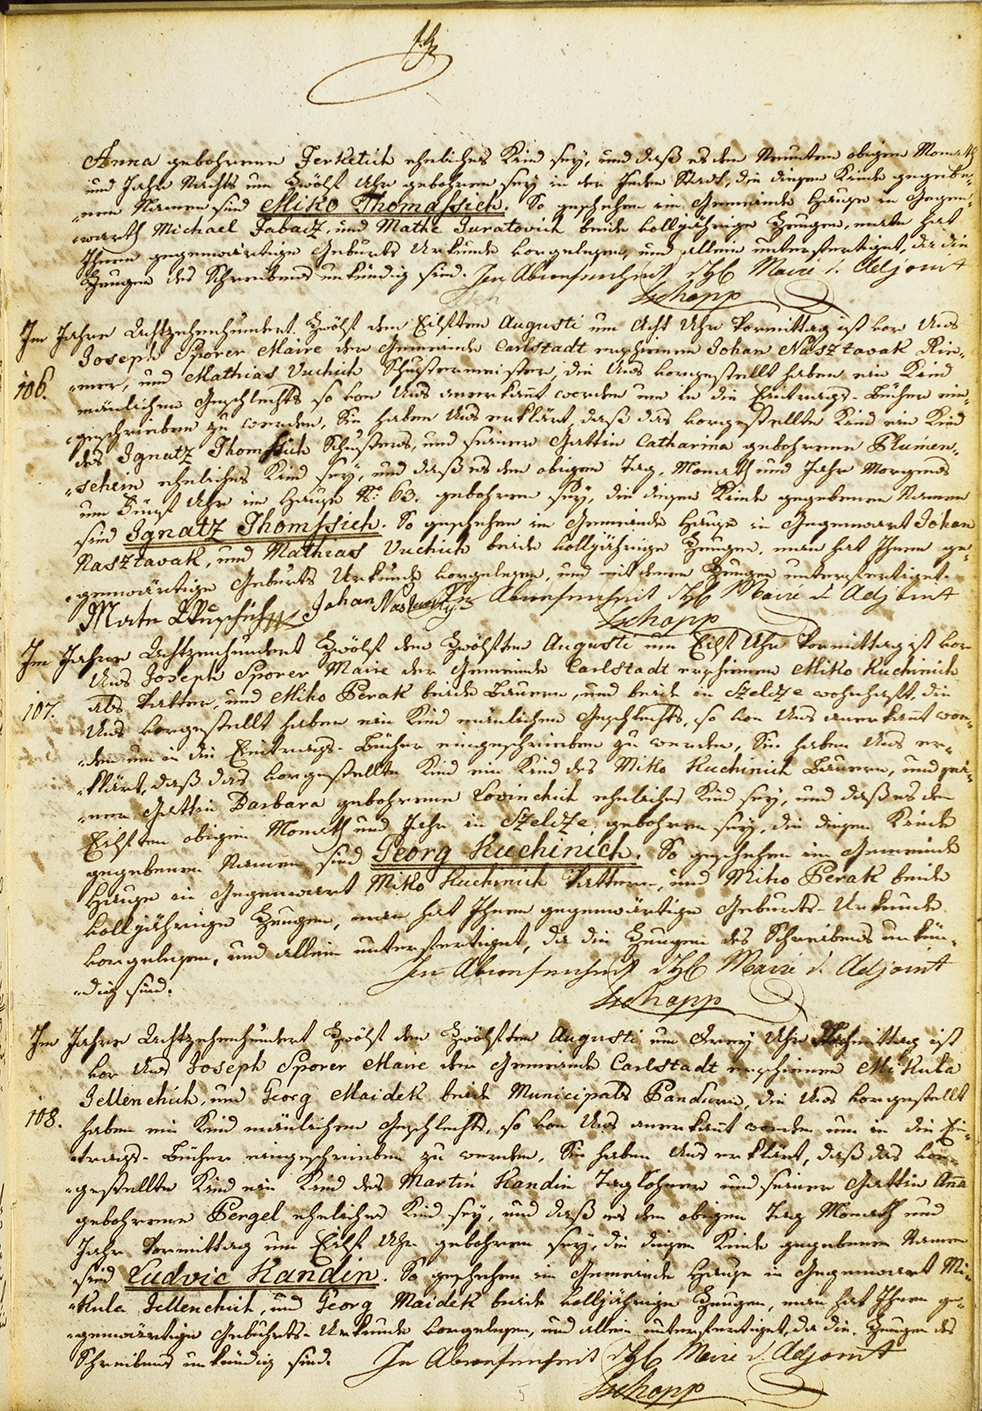 Anna gebohrenen Ferketich eheliches Kind sey, und daß es den Neunten obigen Monath
und Jahr Nachts um Zwölf Uhr gebohren sey in der Stadt, die diesen Kinde gegebe-
-nen Namen sind Miko Thomassich. So geschehen im Gemeinde Hause in Gegen-
-warth Michael Sabaiz, und Mathe Juratovich beide volljährige Zeugen, man hat
Ihnen gegenwärtige Geburts Urkunde vorgelesen, und allein unterfertiget, da die
Zeugen des Schreibens unkündig sind. In Abwesenheit d. H. Maire d. Adjoint
Tschopp
Im Jahre Achtzehenhundert Zwölf den Eilften Augusti um Acht Uhr Vormittag ist vor Uns
Joseph Sporer Maire der Gemeinde Carlstadt erschienen Johan Nasztavak Rie-
106. -mer, und Mathias Vuchich Schustermeister, die Uns vorgestellt haben ein Kind
mänlichen Geschlechts so von Uns anerkant worden um in die Eintrags-Bücher ein-
-geschrieben zu werden, Sie haben Uns erklärt, daß das vorgestellte Kind ein Kind
des Ignatz Thomssich Schusters, und seiner Gattin Catharina gebohrenen Blumen-
-schein eheliches Kind sey, und daß es den obigen Tag, Monath und Jahr Morgens
um Uhr in Hause N: 63. gebohren sey, die diesen Kinde gegebenen Namen
sind Ignatz Thomssich. So geschehen im Gemeinde Hause in Gegenwart Johan
Nasztavak, und Mathias Vuchich beide volljährige Zeugen, man hat Ihnen ge-
-genwärtige Geburts Urkunde vorgelesen, und mit denen Zeugen unterfertiget.
Johan In Abwesenheit d. H. Maire d. Adjoint
Tschopp
Im Jahre Achtzehenhundert Zwölf den Zwölften Augusti um Eilf Uhr Vormittag ist vor
Uns Joseph Sporer Maire der Gemeinde Carlstadt erschienen Miko Kuchinich
107. als Vatter, und Miko Perak beide Bauern, und beide in Szelcze wohnhaft, die
Uns vorgestellt haben ein Kind mänlichen Geschlechts, so von Uns anerkant wor-
-den um in die Eintrags-Bücher eingeschrieben zu werden, Sie haben Uns er-
-klärt, daß das vorgestellte Kind ein Kind des Miko Kuchinich Bauern, und sei-
-ner Gattin Barbara gebohrenen Lovinchich eheliches Kind sey, und daß es den
Eilften obigen Monath und Jahr in Szelcze gebohren sey, die diesen Kinde
gegebenen Namen sind Georg Kuchinich. So geschehen im Gemeinde
Hause in Gegenwart Miko Kuchinich Vattern, und Miko Perak beide
volljährige Zeugen, man hat Ihnen gegenwärtige Geburts-Urkunde
vorgelesen, und allein unterfertiget, da die Zeugen des Schreibens unkün-
-dig sind. In Abwesenheit d. H. Maire d. Adjoint
Tschopp
Im Jahre Achtzehenhundert Zwölf den Zwölften Augusti um Drey Uhr Nachmittag ist
vor Uns Joseph Sporer Maire der Gemeinde Carlstadt erschienen Mikula
108. Jellenchich, und Georg Maidek beide Municipals Panduren, die Uns vorgestellt
haben ein Kind mänlichen Geschlechts, so von Uns anerkant worden um in die Ein-
-trags-Bücher eingeschrieben zu werden. Sie haben Uns erklärt, daß das vor-
-gestellte Kind ein Kind des Martin Kandin Taglöhner und seiner Gattin Ana
gebohrenen Pergel eheliches Kind sey, und daß es den obigen Tag Monath und
Jahr Vormittag um Eilf Uhr gebohren sey, die diesen Kinde gegebenen Namen
sind Ludvic Kandin. So geschehen im Gemeinde Hause in Gegenwart Mi-
-kula Jellenchich, und Georg Maidek beide volljährige Zeugen, man hat Ihnen ge-
-genwärtige Gebuhrts-Urkunde vorgelesen, und allein unterfertiget, da die Zeugen des
Schreibens unkündig sind. In Abwesenheit d. H. Maire d. Adjoint
Tschopp